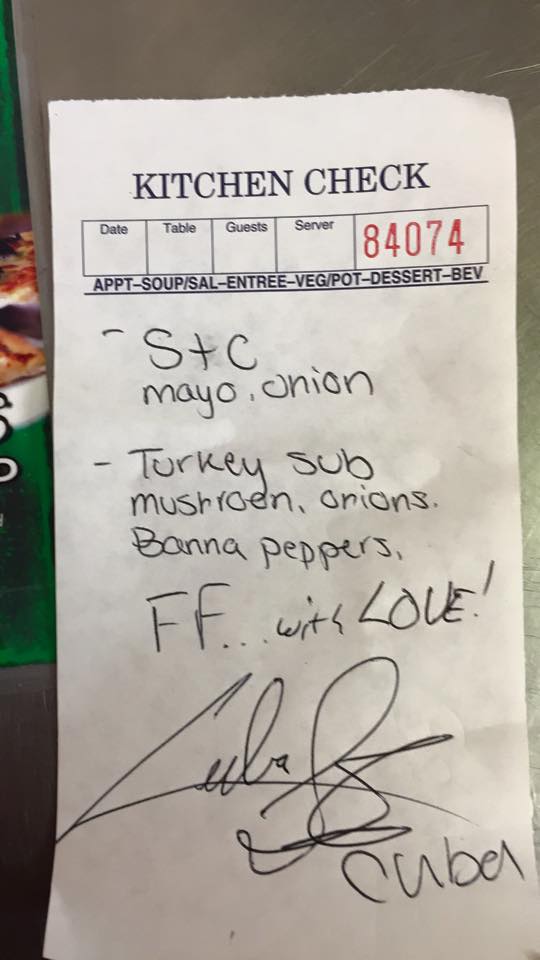 KITCHEN CHECK
Date Table Guests Server 84074
APPT–SOUP/SAL–ENTREE–VEG/POT–DESSERT–BEV
- S+C
mayo, onion
- Turkey sub
mushroen, onions.
Banna peppers,
FF... with LOVE!
Cuba
Cuba